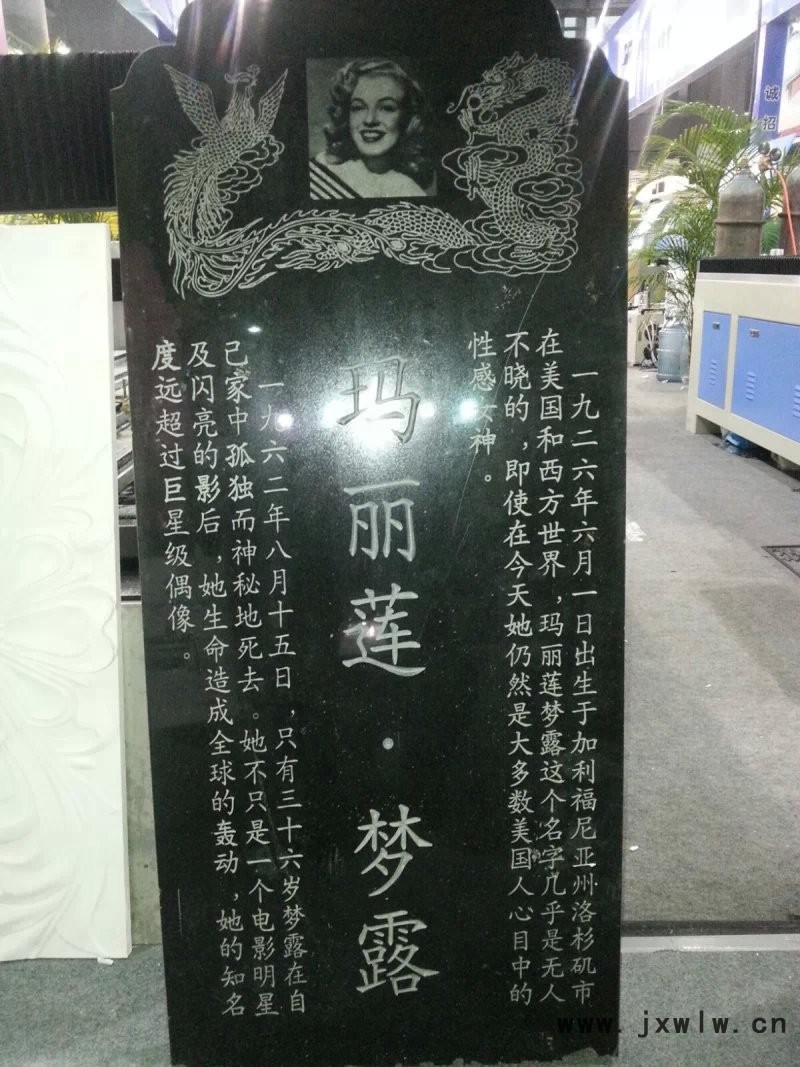 一九二六年六月一日出生于加利福尼亚州洛杉矶市
在美国和西方世界，玛丽莲梦露这个名字几乎是无人
不晓的，即使在今天她仍然是大多数美国人心目中的
性感女神。
玛丽莲·梦露
一九六二年八月十五日，只有三十六岁梦露在自
己家中孤独而神秘地死去。她不只是一个电影明星
及闪亮的影后，她生命造成全球的轰动，她的知名
度远超过巨星级偶像。
诚招
www.jxwlw.cn